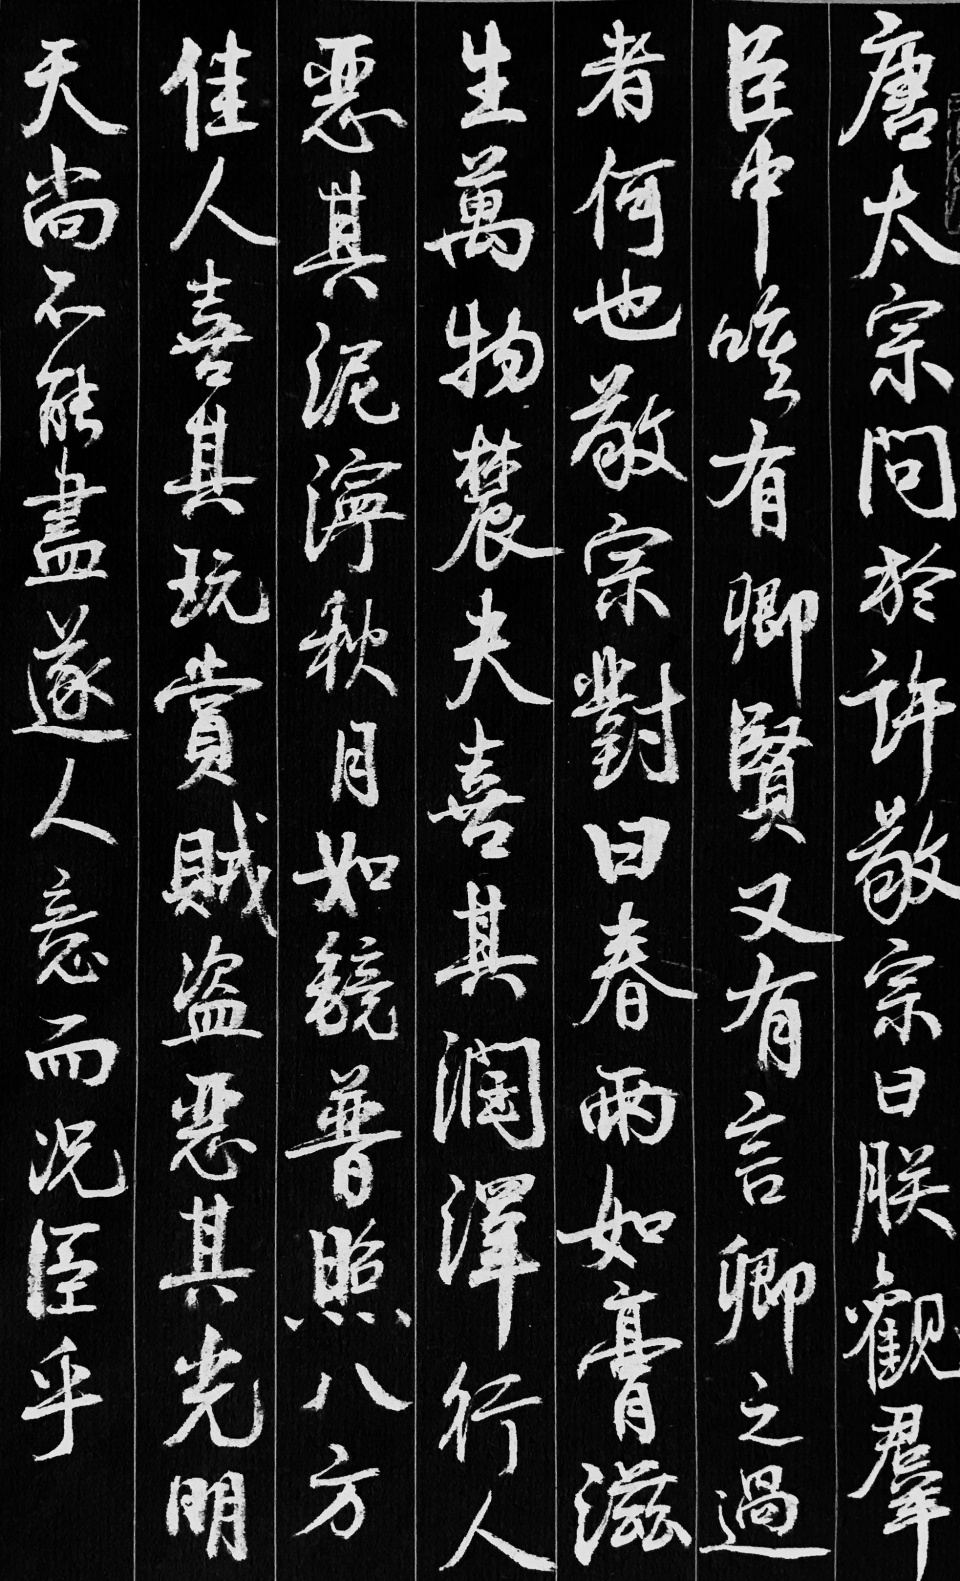 唐太宗問於許敬宗曰朕觀羣
臣中唯有卿賢又有言卿之過
者何也敬宗對曰春雨如膏滋
生萬物農夫喜其潤澤行人
惡其泥濘秋月如鏡普照八方
佳人喜其玩賞賊盜惡其光明
天尚不能盡遂人意而況臣乎